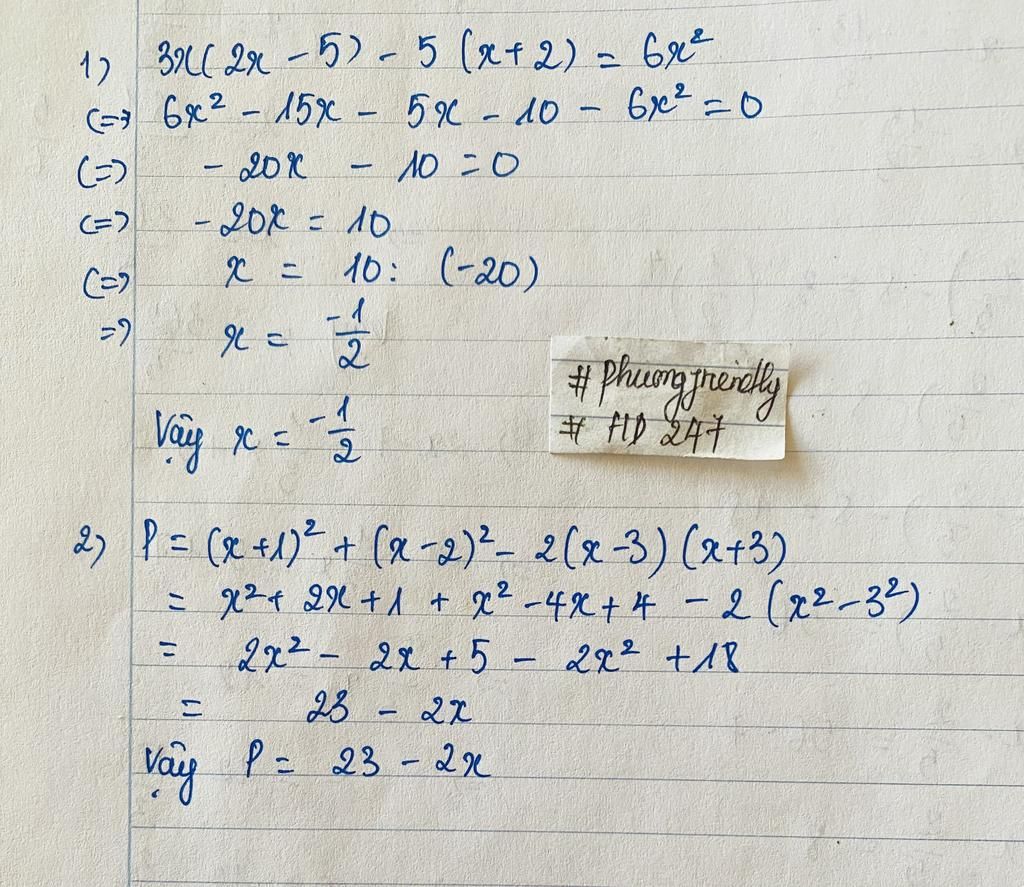 1) 3x(2x - 5) - 5 (x + 2) = 6x²
(=> 6x² - 15x - 5x - 10 - 6x² = 0
(=) - 20x - 10 = 0
(=) - 20x = 10
(=) x = 10 : (-20)
=) x = -1/2
Vậy x = -1/2
# phuongfriendly
# HD 247
2) P = (x + 1)² + (x - 2)² - 2(x - 3)(x + 3)
= x² + 2x + 1 + x² - 4x + 4 - 2 (x² - 3²)
= 2x² - 2x + 5 - 2x² + 18
= 23 - 2x
Vậy P = 23 - 2x